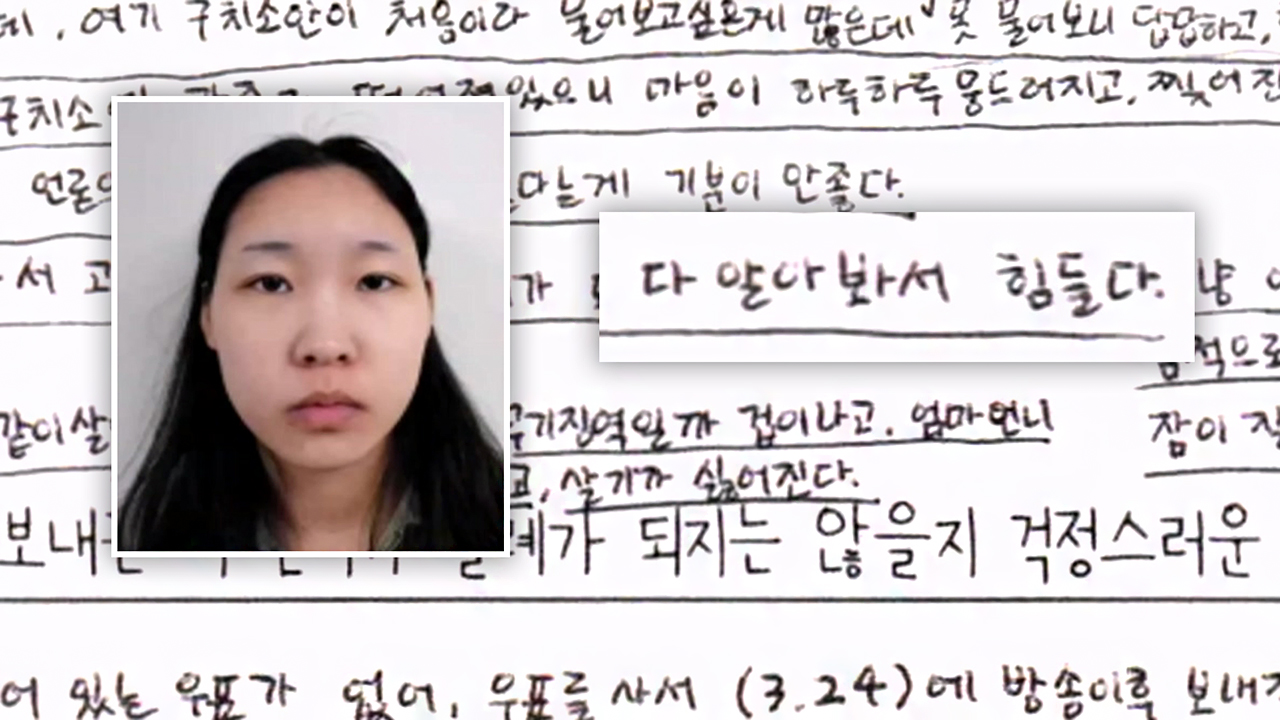 데, 여기 구치소안이 처음이라 물어보고싶은게 많은데 못 물어보니 답답하고,
구치소 떨어져있으니 마음이 하루하루 뭉드러지고, 찢어진
언론 다는게 기분이 안좋다.
서 고 가
다 알아봐서 힘들다.
냥
적으로
같이살 무기징역일까 겁이나고. 엄마언니
잠이
고, 살기가 싫어진다.
보내 가 되지는 않을지 걱정스러운
어 있는 우표가 없어, 우표를 사서 (3.24)에 방송이후 보내